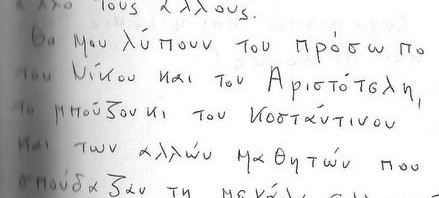 άλλο τους άλλους.
Θα μου λύπουν του πρόσωπο
του Νίκου και του Αριστότελη,
το μπούζουκι του Κοστάντινου
και των αλλών μαθητών που
σπούδαζαν τη